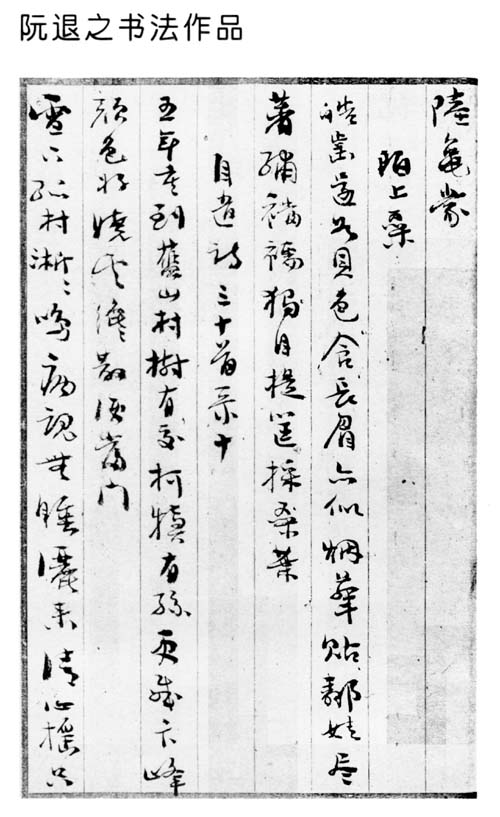 阮退之书法作品
陸龜蒙
陌上桑
皓齒還如貝色含長眉亦似烟華貼鄰娃盡
著繡襠襦獨自提筐採桑葉
自遣詩三十首录十
五年重到舊山村樹有交柯犢有孫更感卞峰
顏色好曉雲纔散便當門
雪下孤村淅〻鳴病魂無睡灑來清心搖只